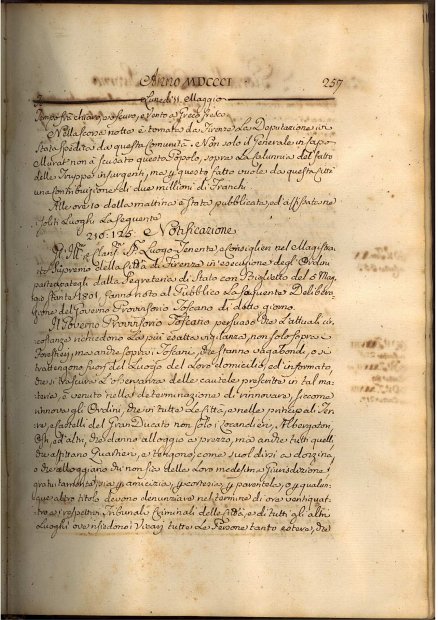 Anno MDCCCI 257
Lunedì 11. Maggio
Tempo frà chiaro, e oscuro, e vento a Greco fresco.
Nella scorsa notte è tornata da Firenze La Deputazione in
stata spedita da questa Comunità. Non solo il Generale in capo
Murat non à scusato questo Popolo, sopra La Calunnia del fatto
delle Truppe insurgenti, ma per questo fatto vuole da questa Città
una contribuzione di due millioni di Franchi.
Alle ore della mattina è stata pubblicata, ed affissata ne
soliti Luoghi La seguente
210:125. Notificazione
Gl' Ill. e Clariss. SS. Luogo Tenente, e Consiglieri nel Magistra
to Supremo della Città di Firenze in esecuzione degl' Ordini
partecipategli dalla Segreteria di Stato con Biglietto del 5 Mag
gio stante 1801, fanno noto al Pubblico La seguente Delibera
zione del Governo Provvisorio Toscano di detto giorno.
Il Governo Provvisorio Toscano persuaso che L'attuali cir
costanze richiedono La più esatta vigilanza, non solo sopra i
Forestieri, ma anche sopra i Toscani, che stanno vagabondi, o si
trattengono fuori del Luogo del Loro domicilio, ed informato,
che si trascura L'osservanza delle cautele prescritte in tal ma
teria, è venuto nella determinazione di rinnovare, siccome
rinnova gli Ordini, che in tutte Le Città, e nelle principali Ter
re, e Castelli del Gran Ducato non solo i Locandieri, Albergatori,
Osti, ed altri, che danno alloggio a prezzo, ma anche tutti quelli,
che aspirano Quartieri, e tengono, come suol dirsi a dozzina,
o che alloggiano chi non sia della Loro medesima Giurisdizione
gratuitamente, sia per amicizia, per cortesia, per parentela, o per qualun
que altro titolo devono denunziare nel termine di ore ventiquat
tro a' respettivi Tribunali Criminali delle Città, e di tutti gli altri
Luoghi ove risiedono i Vicarj tutte Le Persone tanto estere, che